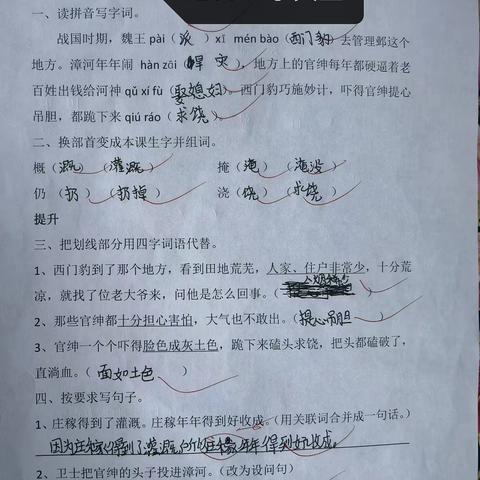 一、读拼音写字词。
战国时期，魏王 pài（派）xī mén bào（西门豹）去管理邺这个
地方。漳河年年闹 hàn zāi（旱灾），地方上的官绅每年都硬逼着老
百姓出钱给河神 qǔ xí fù（娶媳妇）。西门豹巧施妙计，吓得官绅提心
吊胆，都跪下来 qiú ráo（求饶）。
二、换部首变成本课生字并组词。
概（溉）（灌溉） 掩（淹）（淹没）
仍（扔）（扔掉） 浇（饶）（求饶）
提升
三、把划线部分用四字词语代替。
1、西门豹到了那个地方，看到田地荒芜，人家、住户非常少，十分荒
凉，就找了位老大爷来，问他是怎么回事。（人烟稀少）
2、那些官绅都十分担心害怕，大气也不敢出。（提心吊胆）
3、官绅一个个吓得脸色成灰土色，跪下来磕头求饶，把头都磕破了，
直淌血。（面如土色）
四、按要求写句子。
1、庄稼得到了灌溉。庄稼年年得到好收成。（用关联词合并成一句话。）
因为庄稼得到了灌溉，所以庄稼年年得到好收成。
2、卫士把官绅的头子投进漳河。（改为设问句）